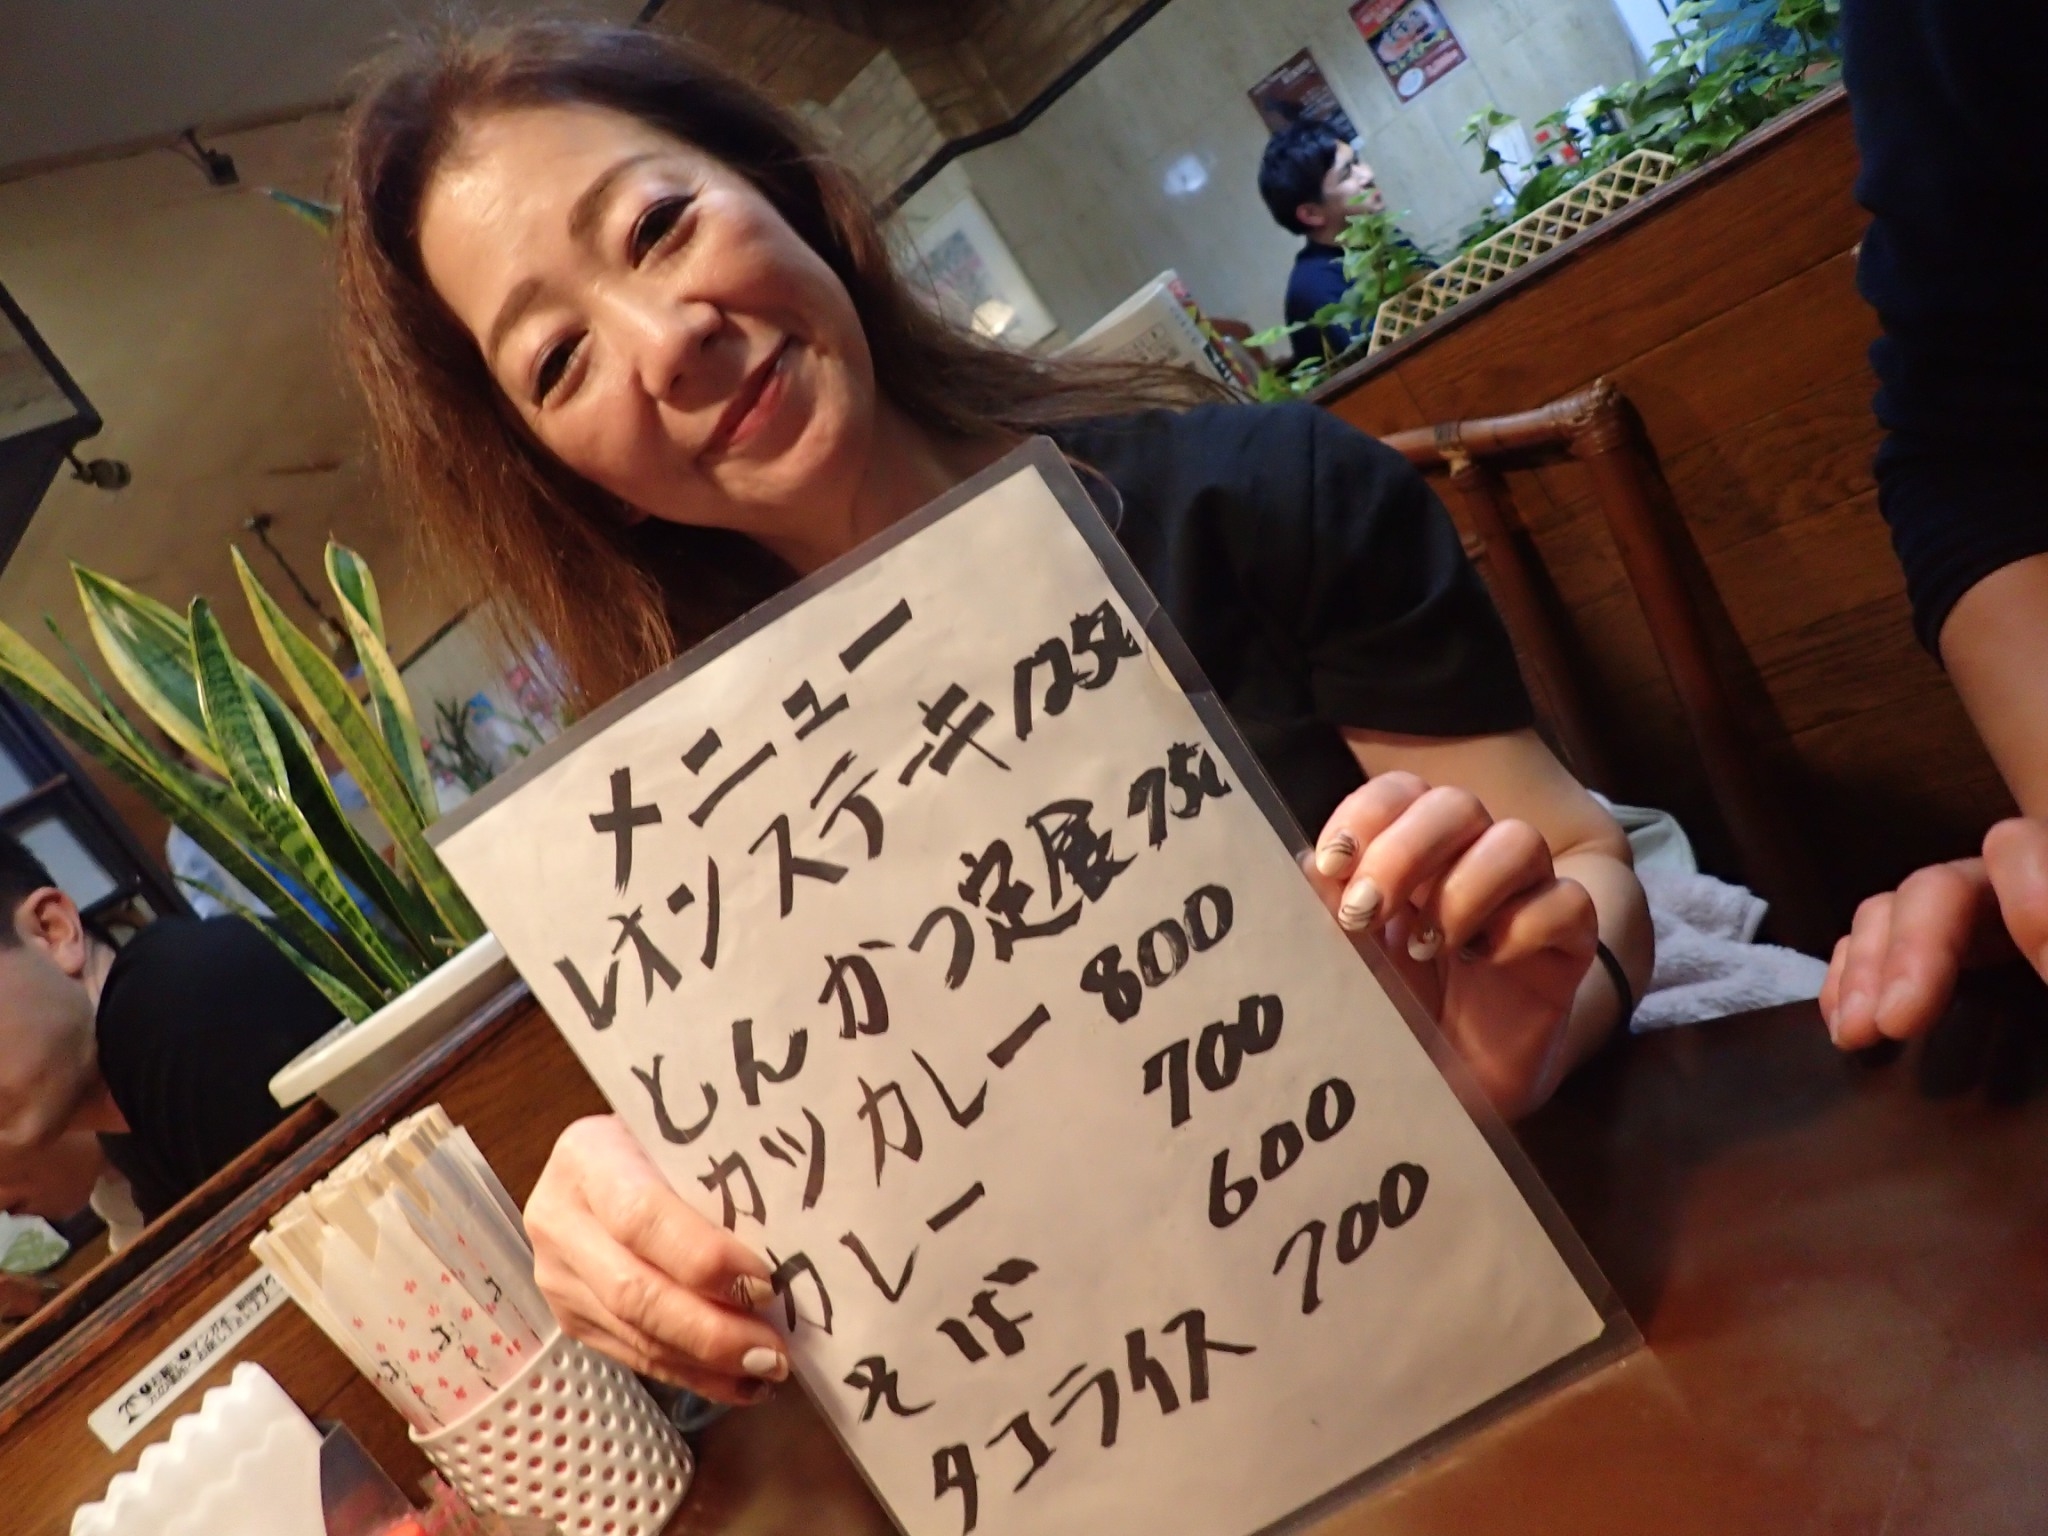 メニュー
レオンステーキ 1250
とんかつ定展 750
カツカレー 800
カレー 700
そば 600
タコライス 700
おてもと